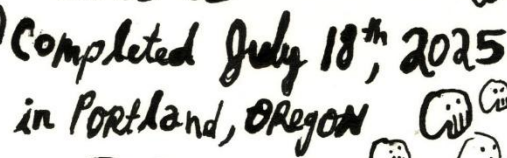 Completed July 18th, 2025
in Portland, Oregon